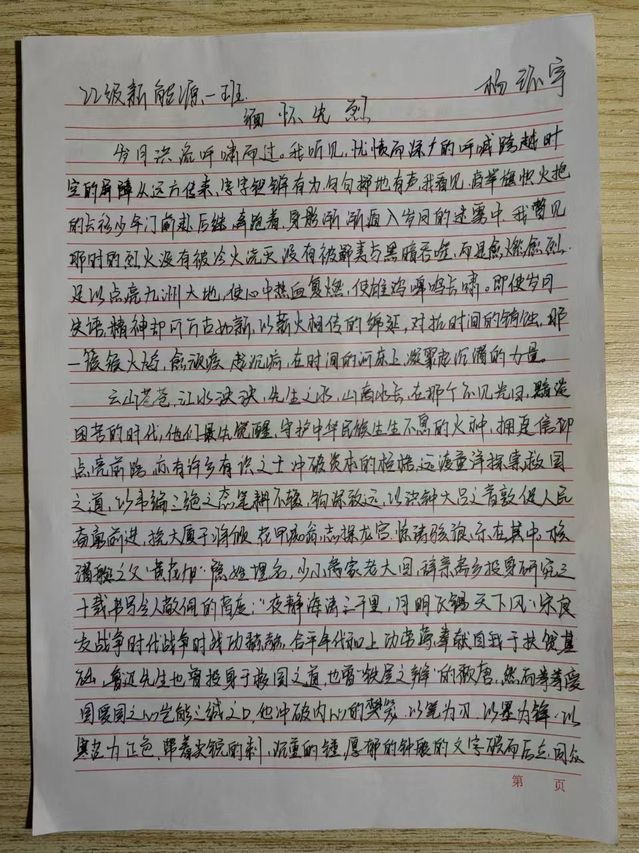 22级新能源一班 杨振宇
缅怀先烈
岁月洪流呼啸而过。我听见,忧愤而深广的呼喊跨越时
空的屏障从远方传来,字字铿锵有力句句掷地有声。我看见,高举旗帜火把
的长衫少年们前赴后继,奔跑着,身影渐渐没入岁月的迷雾中。我瞥见
那时的烈火没有被冷水浇灭没有被鄙夷与黑暗吞噬,而是愈燃愈烈.
足以点亮九州大地,使心中热血复燃,使雄鸡啼鸣长啸。即使岁月
失语,精神却可万古如新,以薪火相传的绵延,对抗时间的销蚀,那
一簇簇火焰,愈滚滚 越沉淀,在时间的河床上,凝聚起沉潜的力量。
云山苍苍,江水泱泱,先生之水,山高水长,在那个不见光日,黯淡
困苦的时代,他们最先觉醒,守护中华民族生生不息的火种,拥更信仰
点亮前路 亦有许多有识之士冲破资本的桎梏,远渡重洋探索救国
之道,以韦编三绝之态笔耕不辍,钩深致远,以洪钟大吕之音敦促人民
奋勇前进,挽大厦于将倾 花甲痴翁,志探龙宫,惊涛骇浪,乐在其中,核
潜艇之父"黄旭华"隐姓埋名,少小离家老大回,辞亲离乡投身研究三
十载书写令人敬佩的高度:"夜静海涛三千里,月明飞锡天下风"宋良
友战争时代战争时战功赫赫,合平年代和上功劳簿,奉献自我于扶贫基
础,鲁迅先生也曾投身于救国之道,也曾"铁屋之辩"的颓唐,然而拳拳爱
国爱国之心岂能三缄之口,他冲破内心的樊笼,以笔为刀 以墨为锋,以
寒芒力正色,带着尖锐的刺,沉重的锤,厚郁的针砭的文字破而后立,因众
第 页